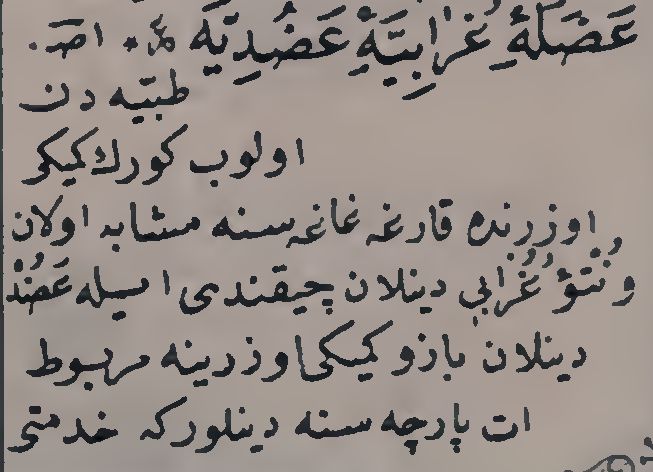 عَضَلَهٔ غُرَابِيَّهِٔ عَضُدِيَّه اصـ.
طبّيه دن
اولوب كورك كميكى
اوزرنده قارغه غاغه سنه مشابه اولان
و نُتوُّ غُرَابى دينلان چيقندى ايله عَضُدْ
دينلان بازو كميكى اوزرينه مربوط
ات پارچه سنه دينلور كه خدمتى